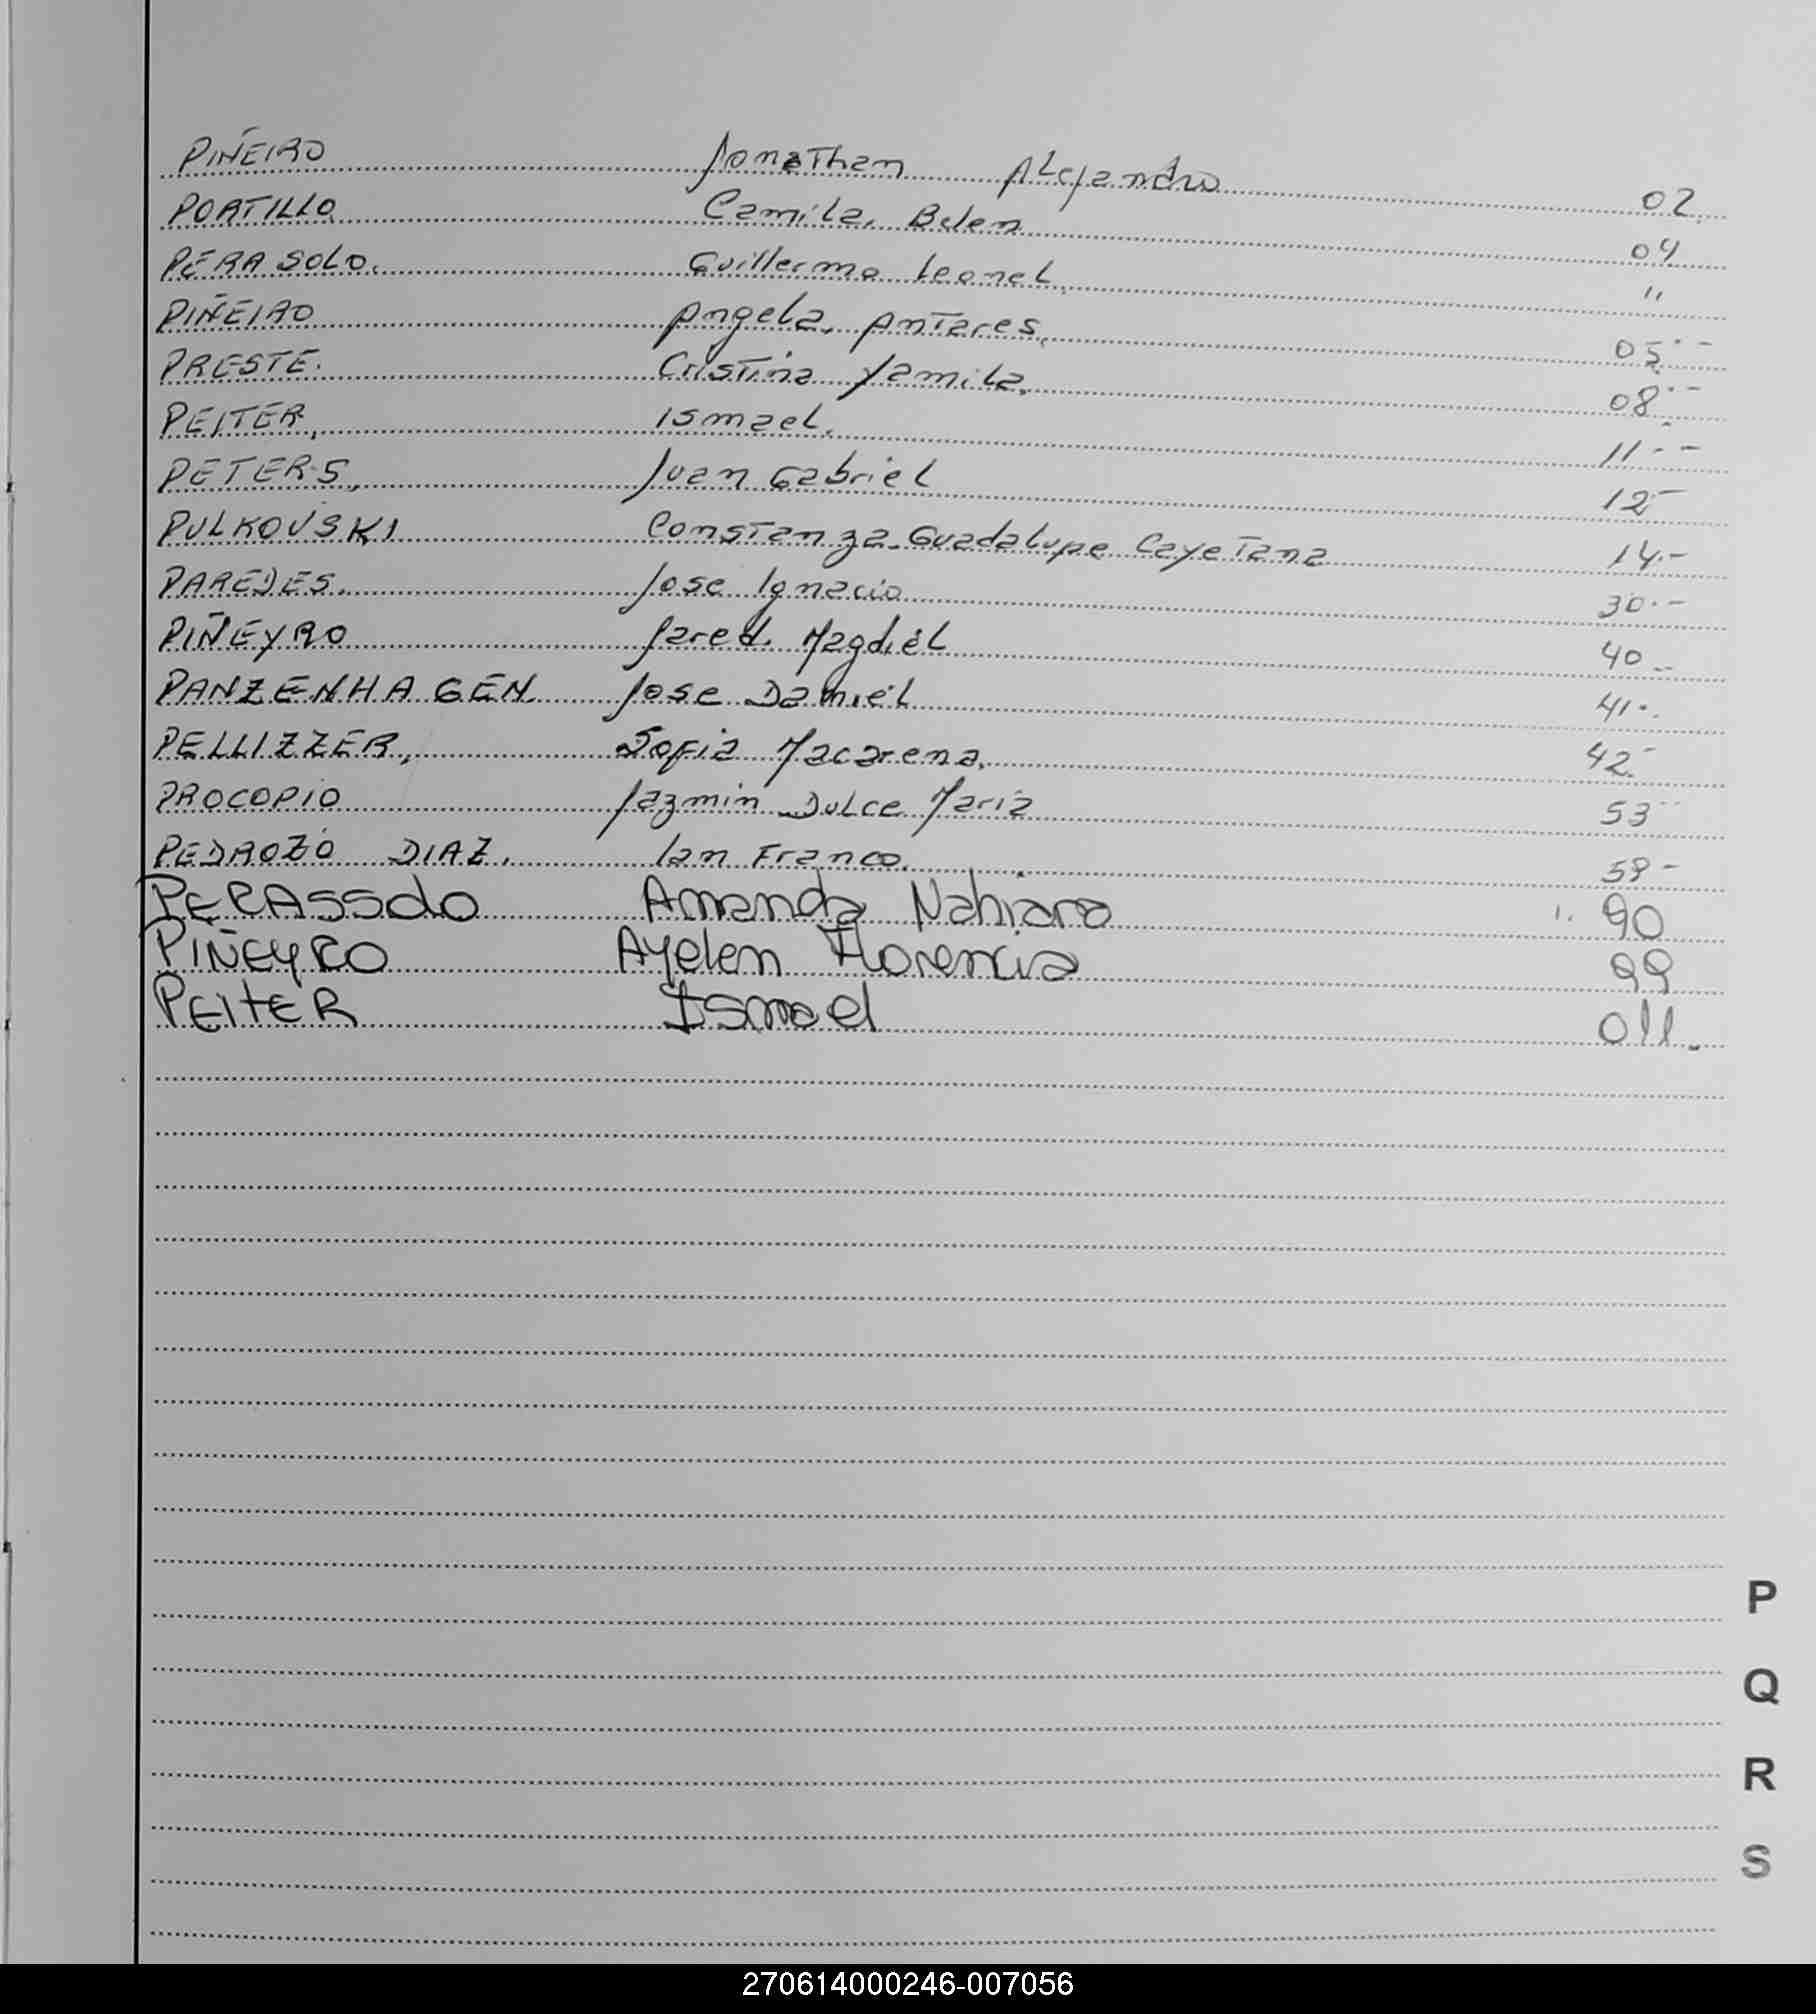 PIÑEIRO Jonathan Alejandro 02
PORTILLO Camila Belen 04
PERASOLO. Guillermo Leonel "
PIÑEIRO Angela Antares 05
PRESTE. Cristina Yamila. 08
PEITER, Ismael. 11
PETERS, Juan Gabriel 12
PULKOVSKI Constanza Guadalupe Cayetana 14.-
PAREDES. Jose Ignacio 30.-
PIÑEYRO Jared Magdiel 40
PANZENHAGEN Jose Daniel 41
PELLIZZER, Sofia Macarena. 42
PROCOPIO Jazmin Dulce Maria 53
PEDROZO DIAZ. Ian Franco. 59-
PERASSOLO Amanda Nahiara 90
PIÑEYRO Ayelen Florencia 99
PEITER Ismael 011.
P
Q
R
S
270614000246-007056